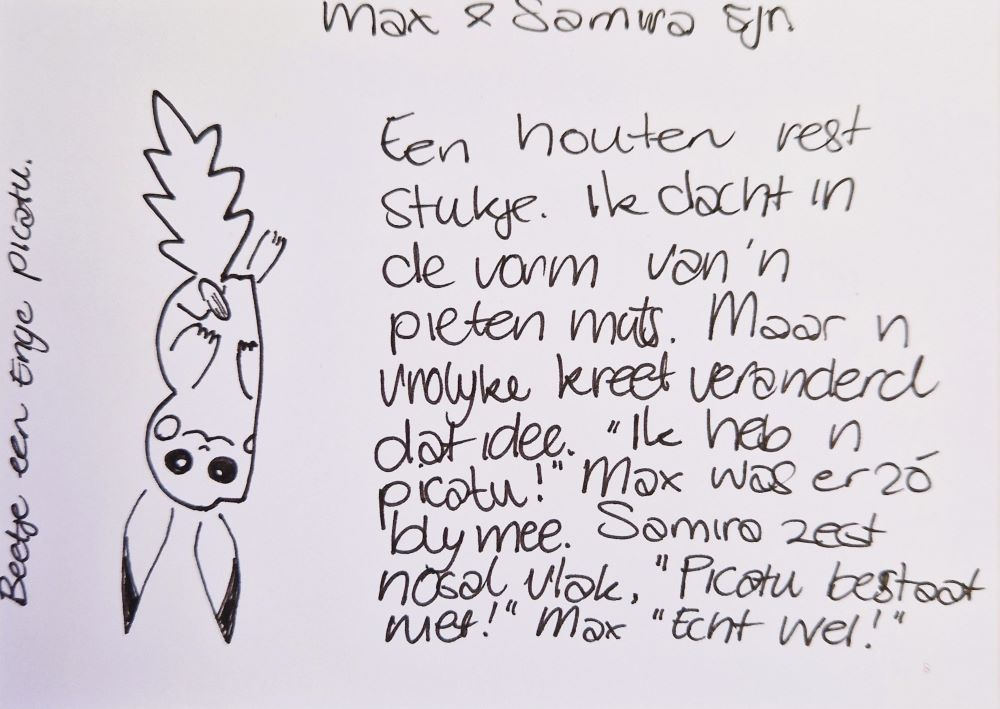 Max & Samira 5jr.
Een houten rest
stukje. Ik dacht in
de vorm van 'n
pieten muts. Maar n
vrolyke kreet veranderd
dat idee. "Ik heb n
picatu!" Max was er zó
bly mee. Samira zegt
nasal vlak, "Picatu bestaat
niet!" Max "Echt wel!"
Beetje een enge picatu.